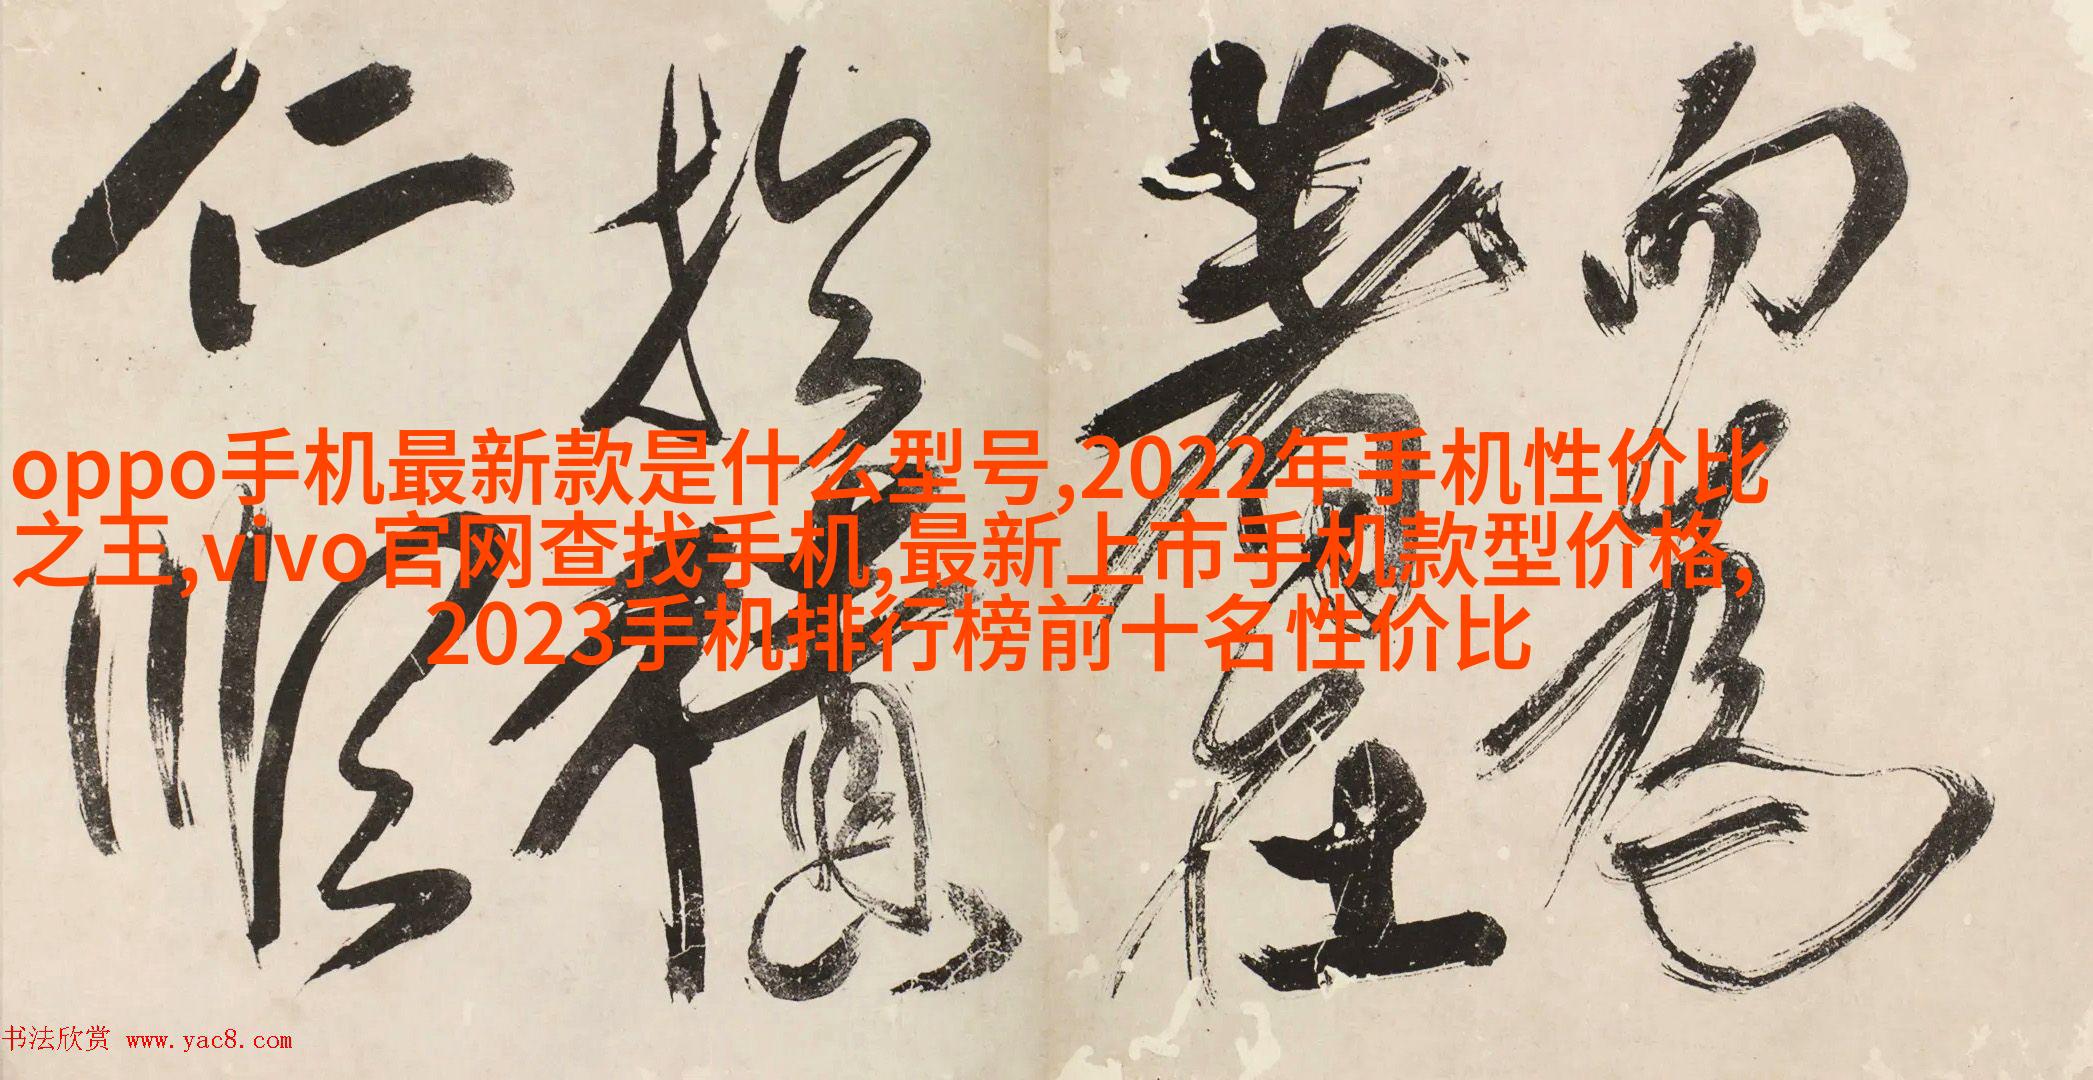 而為
仁順
oppo手机最新款是什么型号,2022年手机性价比
之王,vivo官网查找手机,最新上市手机款型价格,
2023手机排行榜前十名性价比
书法欣赏 www.yac8.com